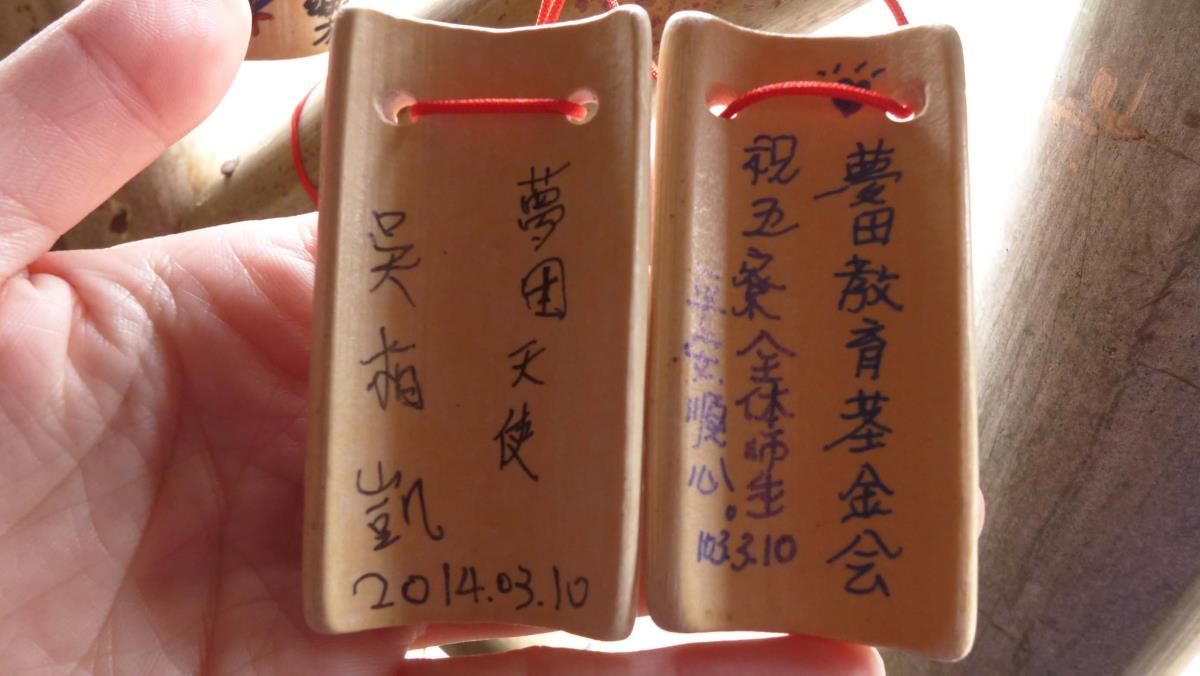 夢田天使
吳柏凱
2014.03.10
夢田教育基金会
祝五寮全体師生
順心。
103.3.10